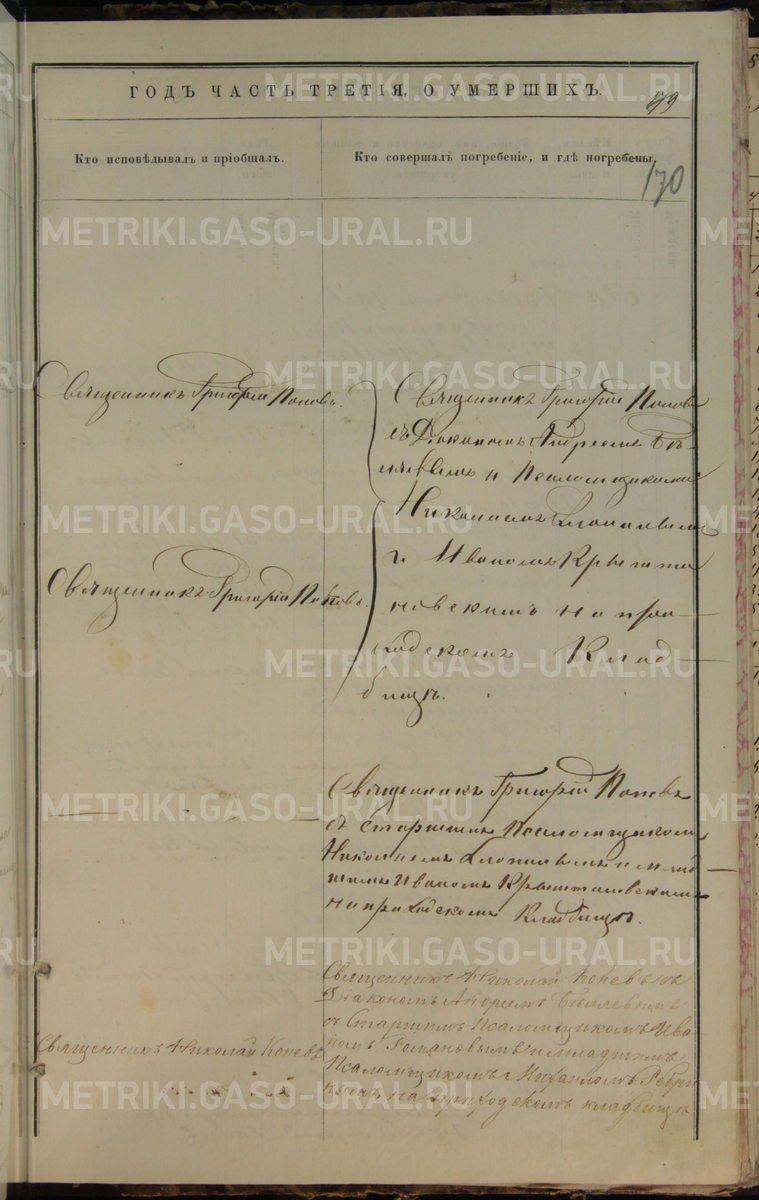 ГОДЪ ЧАСТЬ ТРЕТІЯ, О УМЕРШИХЪ.
Кто исповѣдывалъ и пріобщалъ.
Кто совершалъ погребеніе, и гдѣ погребены.
170
Священникъ Григорій Поповъ.
Священникъ Григорій Поповъ
съ Діакономъ Андреемъ Бѣ-
ляевымъ и Псаломщиками
Николаемъ
и Иваномъ Крышта
новскимъ на при
ходскомъ Клад
бищѣ.
Священникъ Григорій Поповъ.
Священникъ Григорій Поповъ
съ старшимъ Псаломщикомъ
Николаемъ и млад
шимъ Иваномъ Крыштановскимъ
на приходскомъ Кладбищѣ.
Священникъ Николай Коневъ съ
Діакономъ Андреемъ Бѣляевымъ
съ Старшимъ Псаломщикомъ Ива
номъ Романовымъ и младшимъ
Псаломщикомъ Михаиломъ
на приходскомъ кладбищѣ
Священникъ Николай Коневъ
METRIKI.GASO-URAL.RU